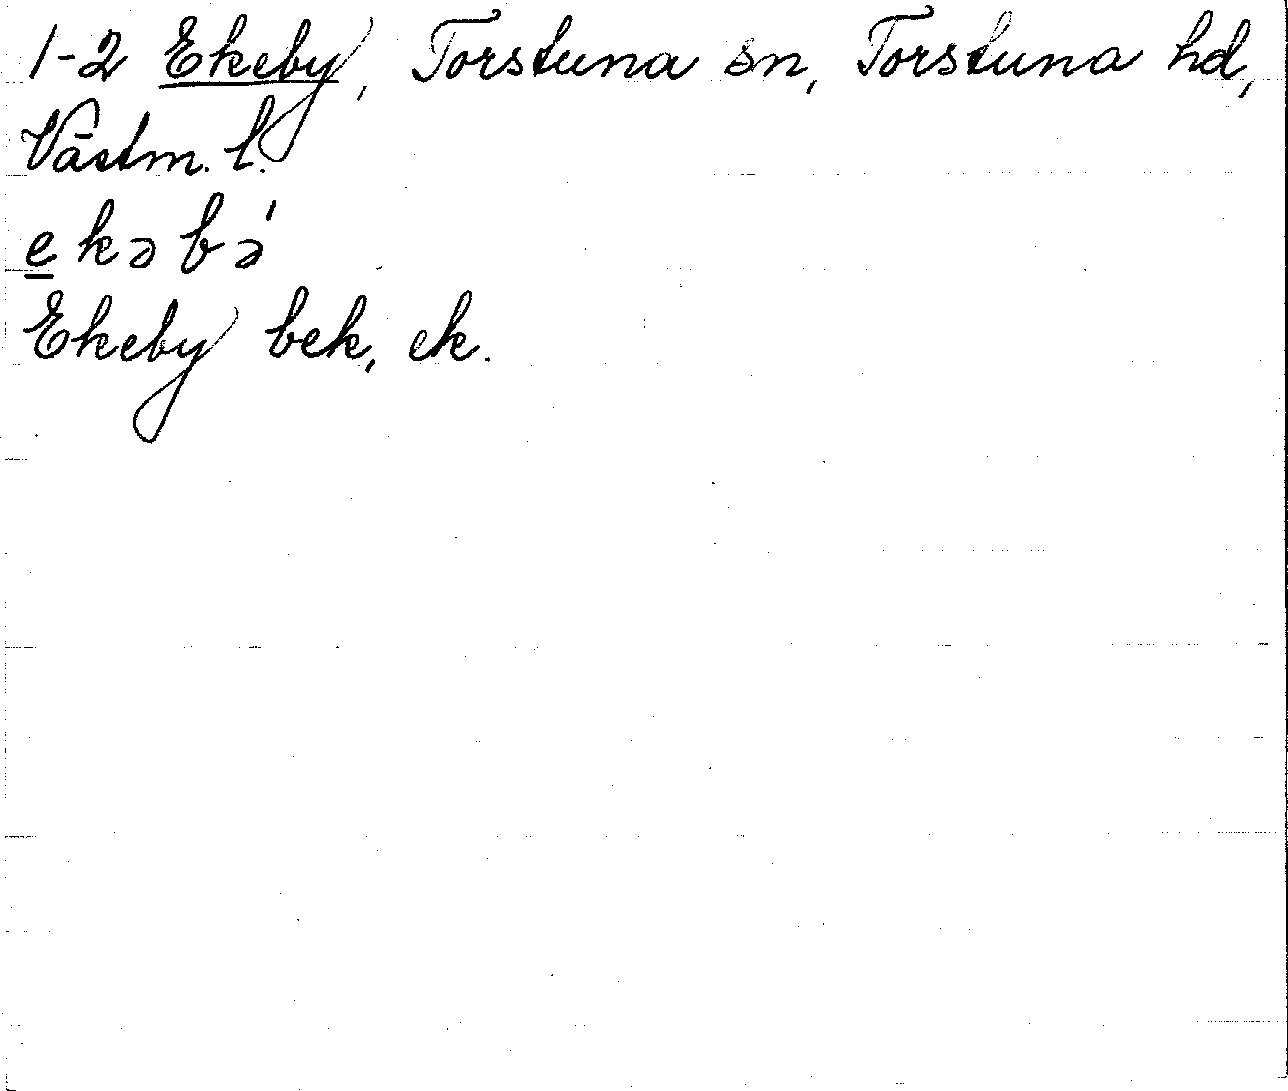 1-2 Ekeby, Torstuna sn, Torstuna hd,
Västm. l.
e̲kəbə́
Ekeby bek, ek.